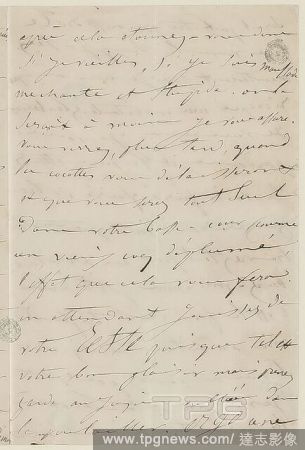 si je vieillis, si je suis maussade
méchante et stupide on le
serait à moins je vous assure.
vous verrez, plus tard, quand
les cocottes vous délaisseront
et que vous serez tout seul
Dans votre basse-cour comme
un vieux coq déplumé
l'effet que cela vous fera
en attendant jouissez de
votre reste puisque tel est
votre bon plaisir mais prenez
garde au
TPG
www.tpgnews.com/達志影像